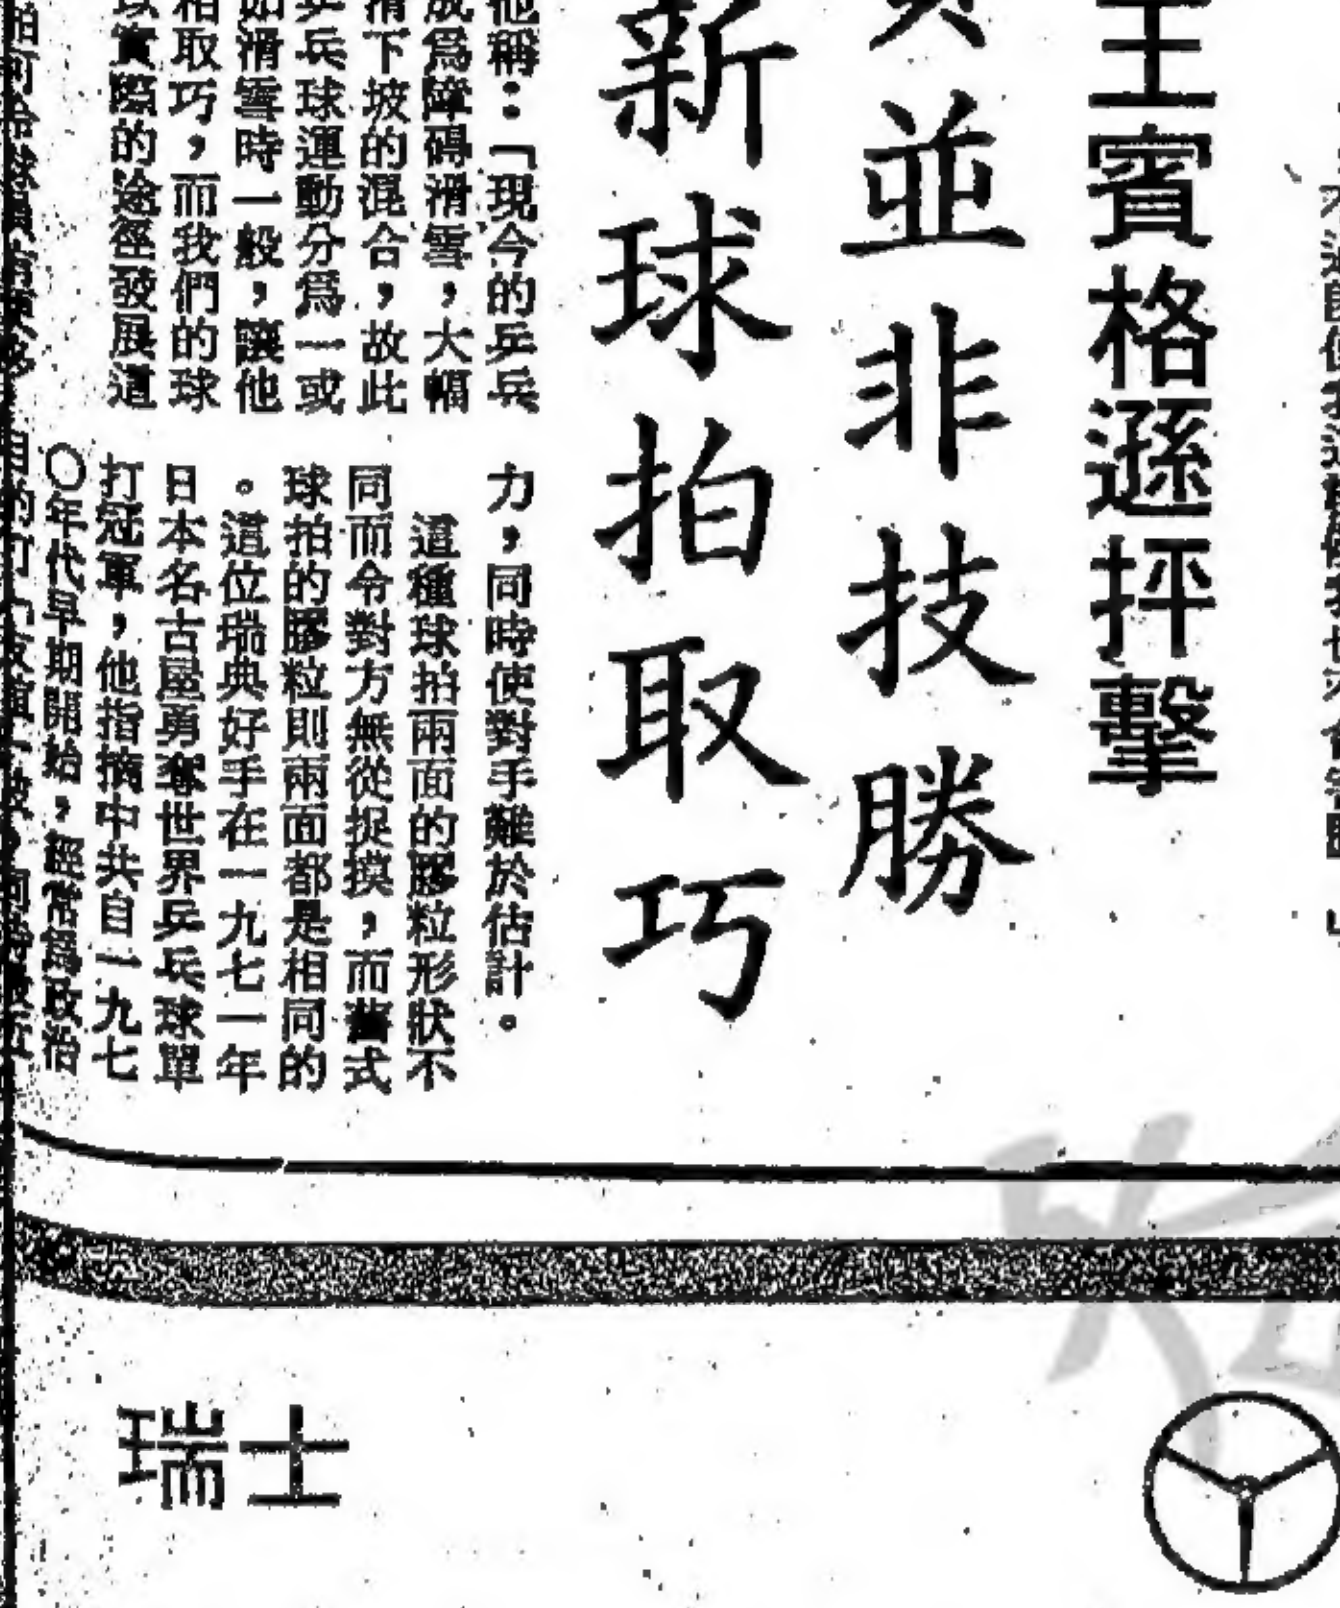 王賓格遜抨擊
並非技勝
新球拍取巧
他稱：「現今的乒乓
成為障碍滑雪，大幅
滑下坡的混合，故此
乒乓球運動分為一或
如滑雪時一般，讓他
相取巧，而我們的球
以實際的途徑發展這
力，同時使對手難於估計。
這種球拍兩面的膠粒形狀不
同而令對方無從捉摸，而舊式
球拍的膠粒則兩面都是相同的
。這位瑞典好手在一九七一年
日本名古屋勇奪世界乒乓球單
打冠軍，他指摘中共自一九七
〇年代早期開始，經常為政治
瑞士